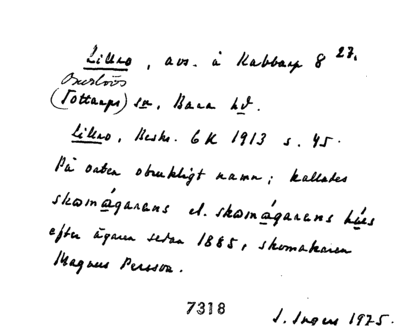 Lillro, avs. å Kabbarp 8 27.
Oxelrös
(Tottarps) sn, Bara hd.
Lillro, Beskr. GK 1913 s. 45.
På orten obrukligt namn; kallades
skomágarens el. skomágarens húes
efter ägaren sedan 1885, skomakaren
Magnus Persson.
7318
I. Ingers 1975.